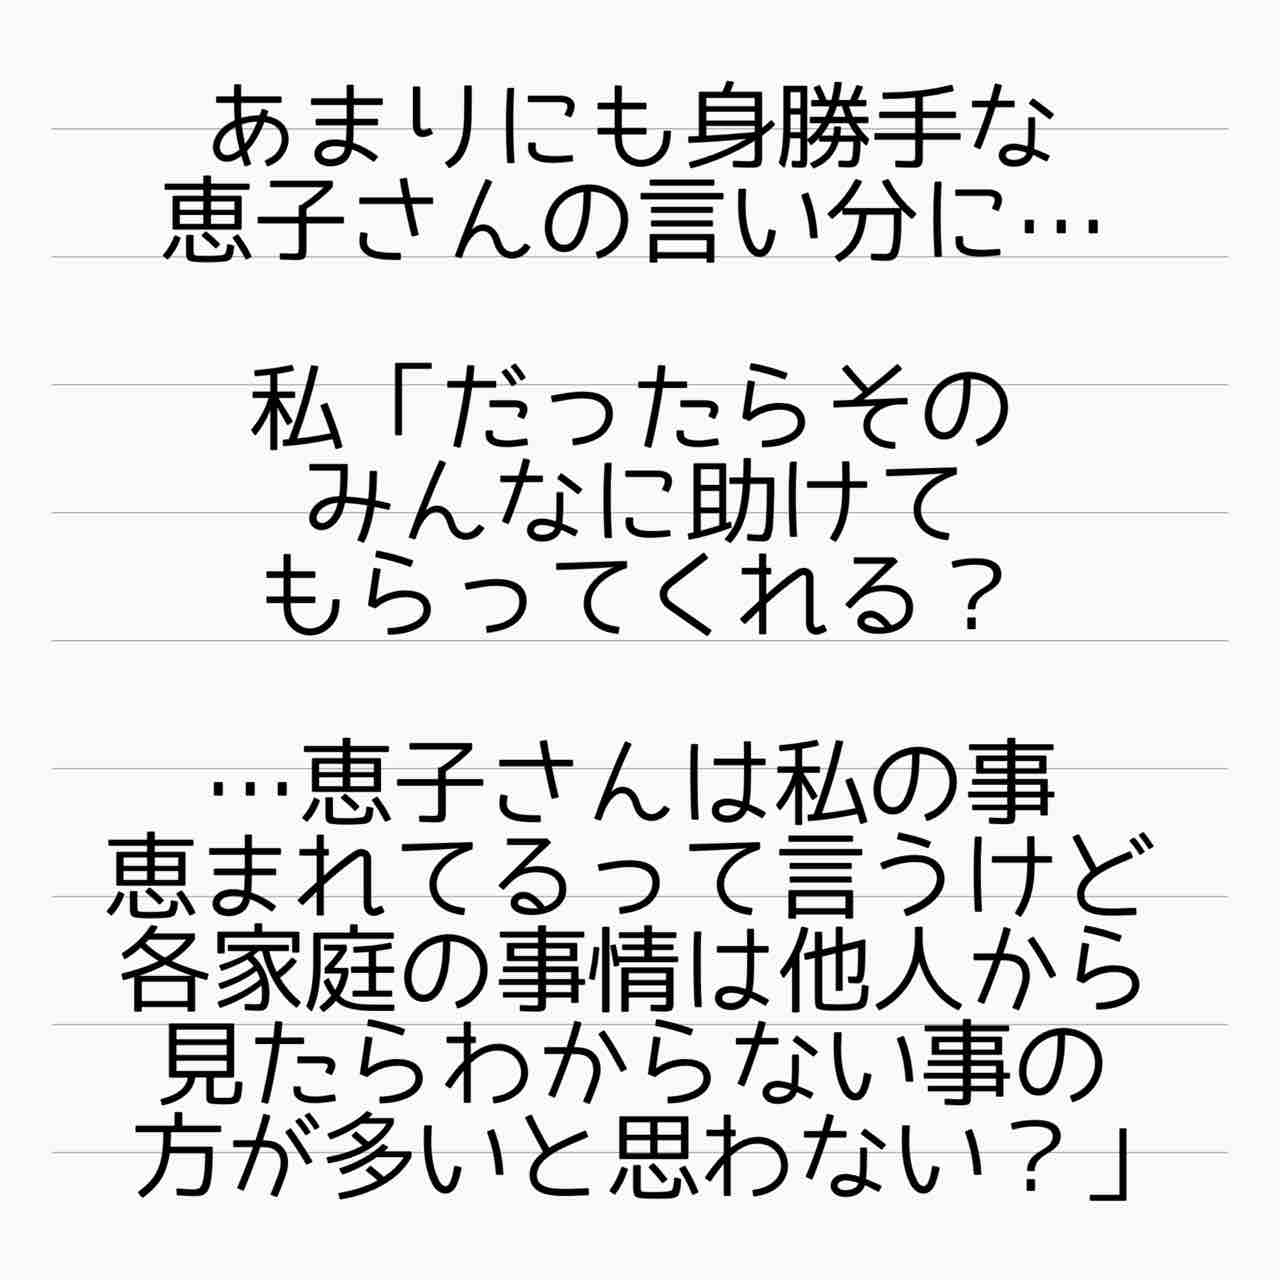 あまりにも身勝手な
恵子さんの言い分に…
私「だったらその
みんなに助けて
もらってくれる？
…恵子さんは私の事
恵まれてるって言うけど
各家庭の事情は他人から
見たらわからない事の
方が多いと思わない？」